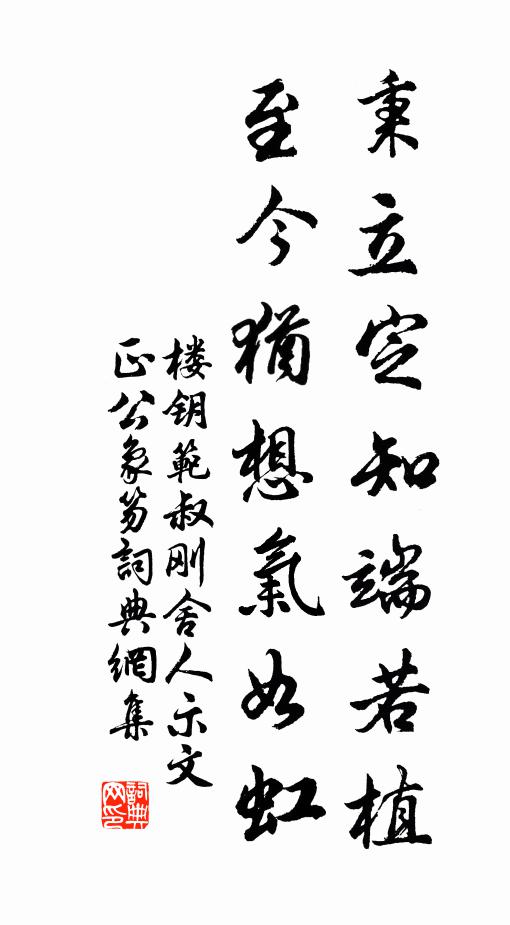 秉立定知端若植
至今犹想氣如虹
楼钥範叔刚舍人示文
正公象笏詞典網集
詞典网印